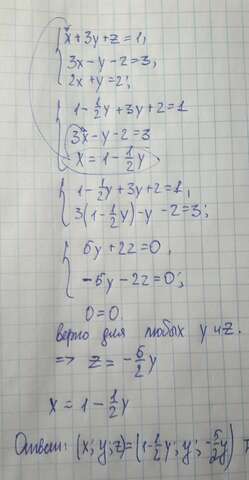 x + 3y + z = 1,
3x - y - z = 3,
2x + y = 2;
1 - 1/2 y + 3y + z = 1
3x - y - z = 3
x = 1 - 1/2 y
1 - 1/2 y + 3y + z = 1,
3(1 - 1/2 y) - y - z = 3;
5y + 2z = 0,
-5y - 2z = 0;
0 = 0.
верно для любых y и z.
=> z = -5/2 y
x = 1 - 1/2 y
Ответ: (x; y; z) = (1 - 1/2 y; y; -5/2 y)